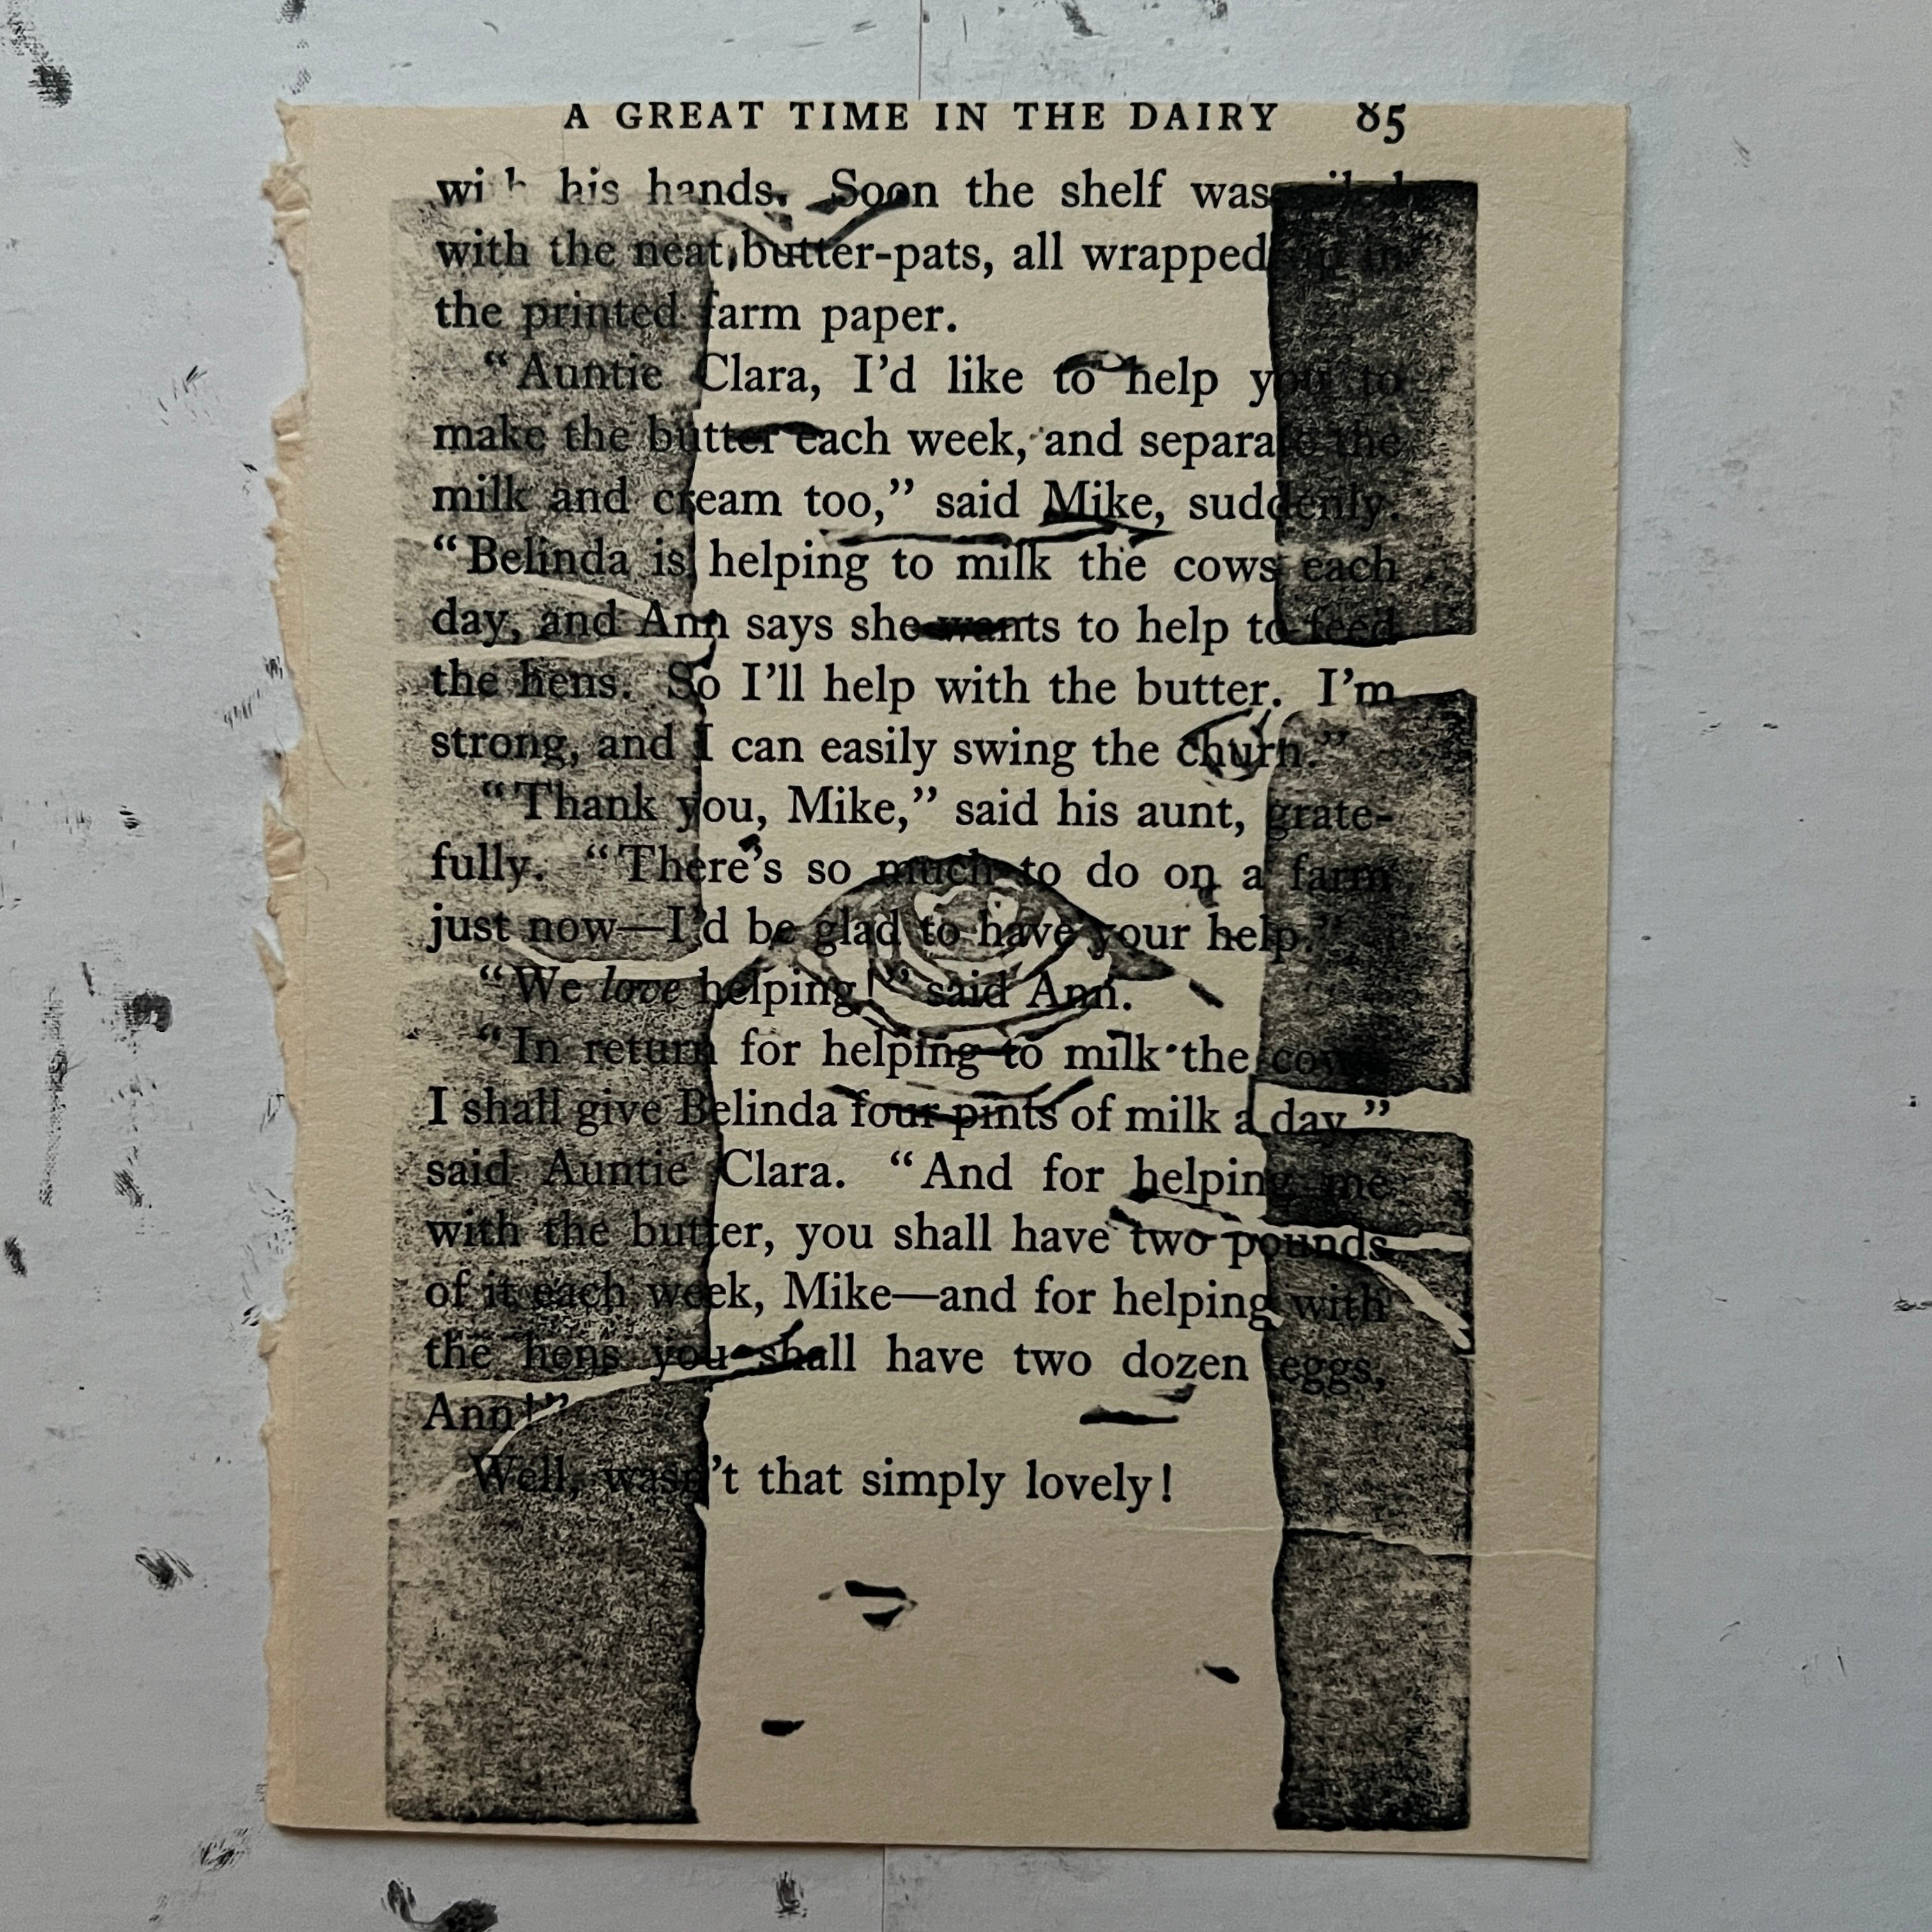 A GREAT TIME IN THE DAIRY 85
with his hands. Soon the shelf was piled
with the neat butter-pats, all wrapped up in
the printed farm paper.
“Auntie Clara, I’d like to help you to
make the butter each week, and separate the
milk and cream too,” said Mike, suddenly.
“Belinda is helping to milk the cows each
day, and Ann says she wants to help to feed
the hens. So I’ll help with the butter. I’m
strong, and I can easily swing the churn.”
“Thank you, Mike,” said his aunt, grate-
fully. “There’s so much to do on a farm
just now—I’d be glad to have your help.”
“We love helping!” said Ann.
“In return for helping to milk the cows
I shall give Belinda four pints of milk a day,”
said Auntie Clara. “And for helping me
with the butter, you shall have two pounds
of it each week, Mike—and for helping with
the hens you shall have two dozen eggs,
Ann!”
Well, wasn’t that simply lovely!